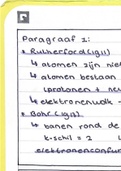 Paragraaf 1:
• Rutherford (1911)
↳ atomen zijn
↳ atomen bestaan
(protonen +
↳ elektronenwolk
• Bohr (1913)
↳ banen rond de
k-schil = 2
elektronenconfi